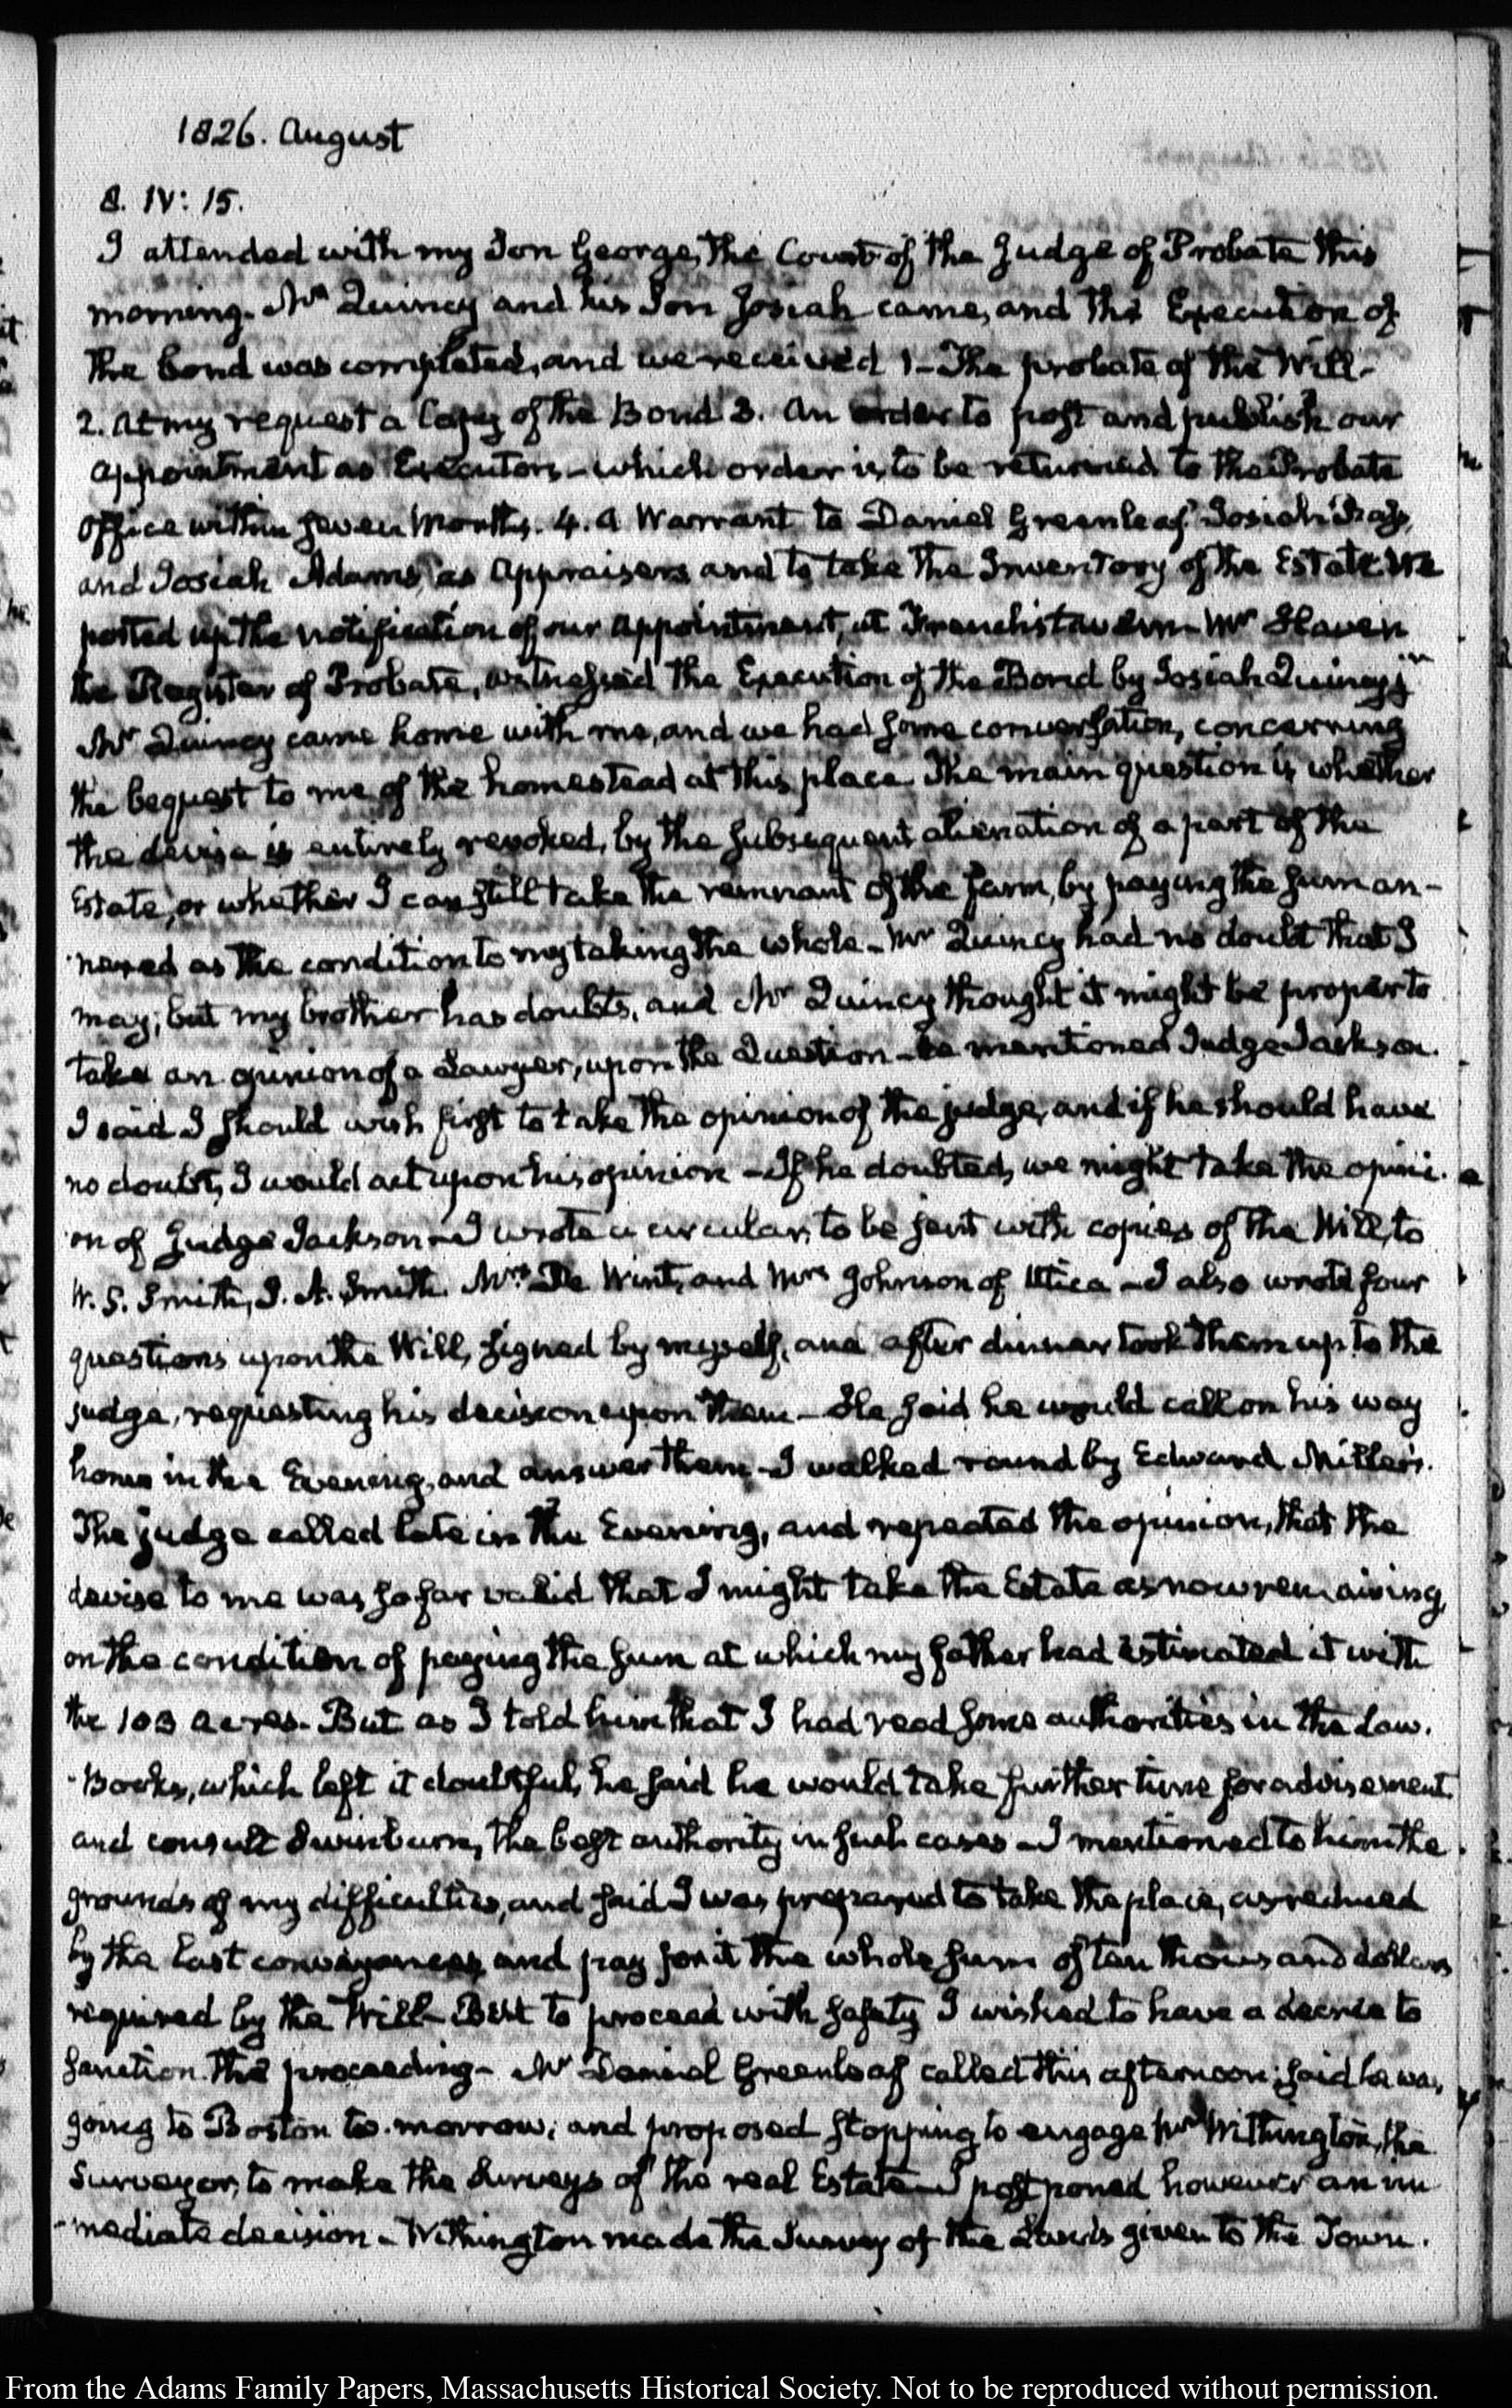 1826. August
8. IV: 15.
I attended with my Son George, the Court of the Judge of Probate this
morning. Mr Quincy and his Son Josiah came, and the Execution of
the bond was completed, and we received 1 - The probate of the Will -
2. At my request a Copy of the Bond 3. An order to post and publish our
appointment as Executors - which order is to be returned to the Probate
Office within seven Months. 4. A Warrant to Daniel Greenleaf, Josiah
and Josiah Adams, as Appraisers and to take the Inventory of the Estate We
posted up the notification of our appointment, at French's tavern - Mr Haven
the Register of Probate, witnessed the Execution of the Bond by Josiah Quincy jun
Mr Quincy came home with me, and we had some conversation, concerning
the bequest to me of the homestead at this place. The main question is whether
the devise is entirely revoked, by the subsequent alienation of a part of the
Estate, or whether I can still take the remnant of the farm, by paying the sum an-
nexed as the condition to my taking the whole - Mr Quincy had no doubt that I
may; but my brother has doubts, and Mr Quincy thought it might be proper to
take an opinion of a Lawyer, upon the Question - he mentioned Judge Jackson.
I said I should wish first to take the opinion of the judge, and if he should have
no doubt, I would act upon his opinion - If he doubted, we might take the opini-
on of Judge Jackson - I wrote a circular, to be sent with copies of the Will, to
W. S. Smith, J. A. Smith. Mrs De Wint, and Mrs Johnson of Utica - I also wrote four
questions upon the Will, signed by myself, and after dinner took them up to the
judge, requesting his decision upon them - He said he would call on his way
home in the Evening, and answer them - I walked round by Edward Miller's.
The judge called late in the Evening, and repeated the opinion, that the
devise to me was so far valid that I might take the Estate as now remaining,
on the condition of paying the sum at which my father had estimated it with
the 103 acres - But as I told him that I had read some authorities in the Law.
Books, which left it doubtful, he said he would take further time for advisement
and consult Swinburn, the best authority in such cases - I mentioned to him the
grounds of my difficulties, and said I was prepared to take the place, as reduced
by the last conveyances and pay for it the whole sum of ten thousand dollars
required by the Will - But to proceed with safety I wished to have a decree to
sanction the proceeding - Mr Daniel Greenleaf called this afternoon; said he was
going to Boston to-morrow; and proposed stopping to engage Mr Withington, the
Surveyor, to make the Surveys of the real Estate - I postponed however an im-
-mediate decision - Withington made the Survey of the Lands given to the Town.
From the Adams Family Papers, Massachusetts Historical Society. Not to be reproduced without permission.